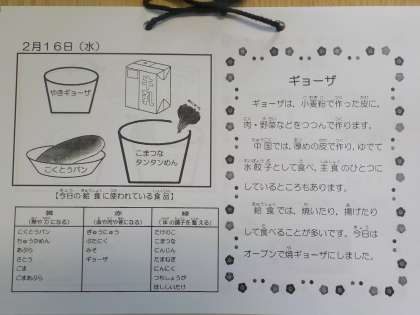 2月16日（水）
やきギョーザ
牛乳
こまつな
タンタンめん
こくとうパン
【今日の給食に使われている食品】
黄
赤
緑
(熱や力になる)
(血や肉や骨になる)
(体の調子を整える)
こくとうパン
ちゅうかめん
あぶら
さとう
ごま
ごまあぶら
ぎゅうにゅう
ぶたにく
みそ
ギョーザ
たけのこ
こまつな
にんじん
たまねぎ
にんにく
つちしょうが
ほししいたけ
ギョーザ
ギョーザは、小麦粉で作った皮に、
肉・野菜などをつつんで作ります。
中国では、厚めの皮で作り、ゆでて
水餃子として食べ、主食のひとつに
しているところもあります。
給食では、焼いたり、揚げたり
して食べることが多いです。今日は
オーブンで焼ギョーザにしました。